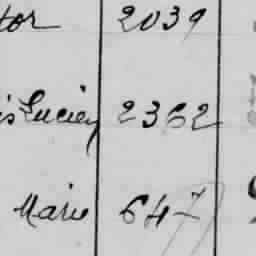 tor 2039
is Lucien 2362
Marie 647